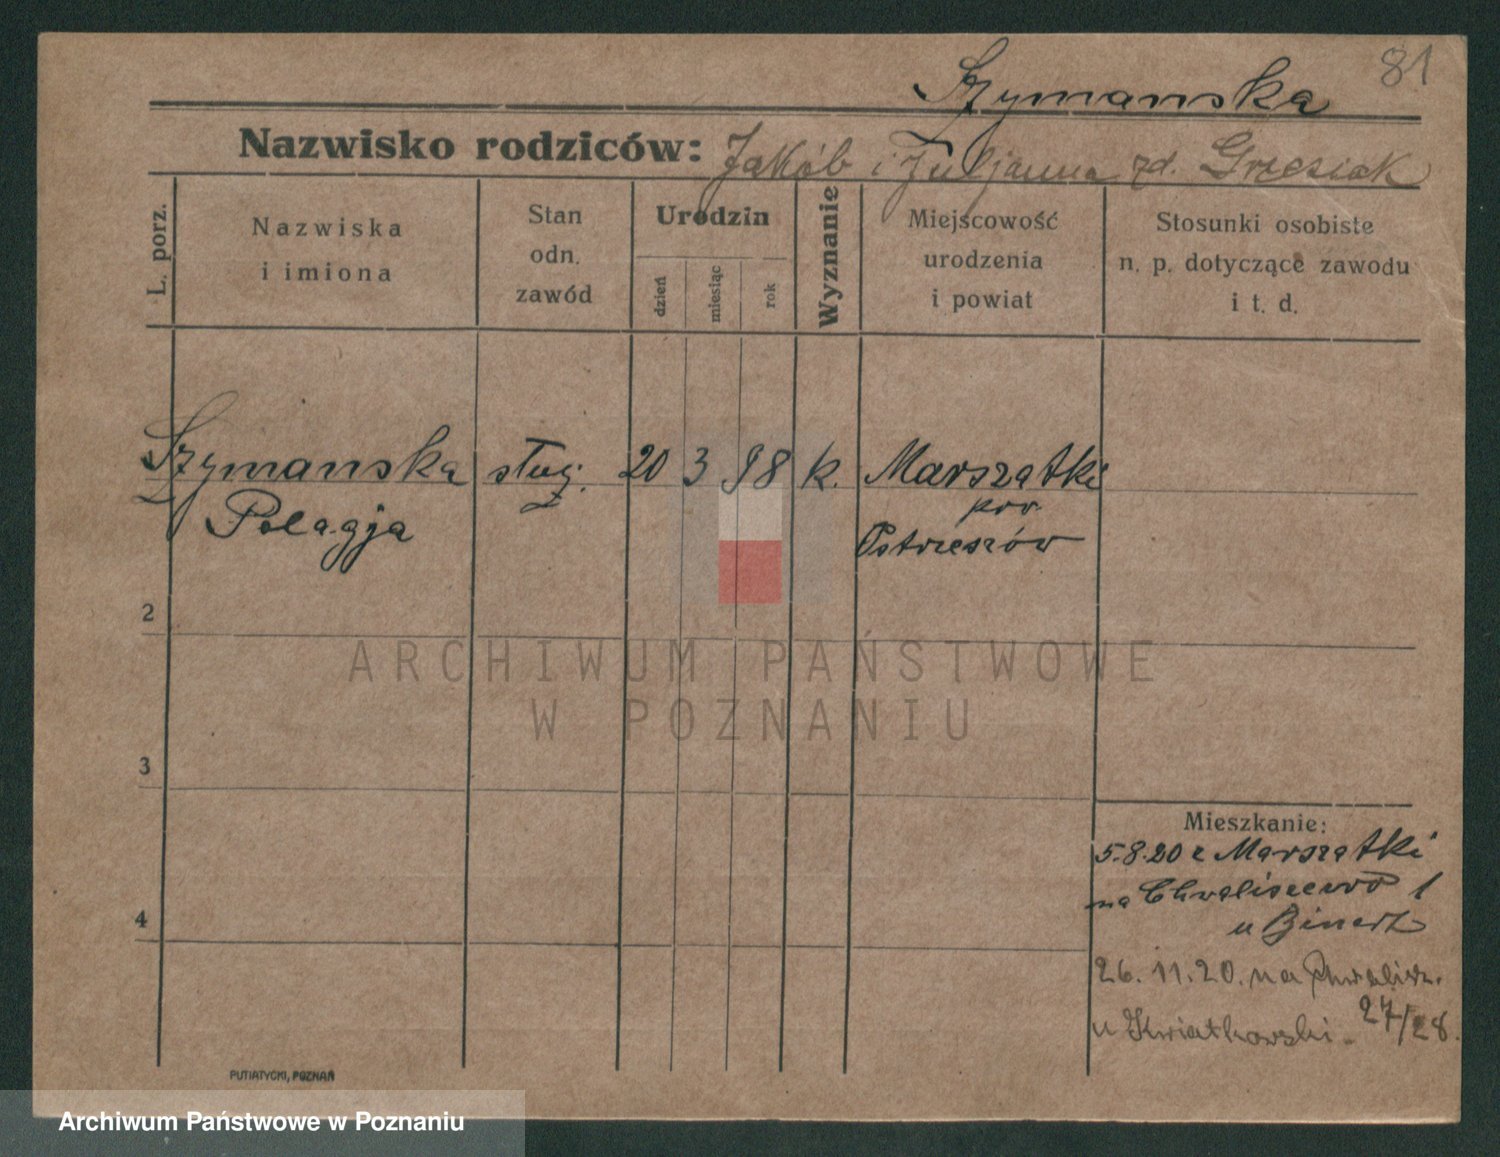 81
Szymanska
Nazwisko rodziców: Jakób i Juljanna zd. Grzesiak
L. porz.
Nazwiska
i imiona
Stan
odn.
zawód
Urodzin
dzień
miesiąc
rok
Wyznanie
Miejscowość
urodzenia
i powiat
Stosunki osobiste
n. p. dotyczące zawodu
i t. d.
Szymanska służ. 20 3 98 k. Marszałki
Pelagja
pow.
Ostrzeszów
2
ARCHIWUM PAŃSTWOWE
W POZNANIU
3
4
Mieszkanie:
5.8.20 z Marszałki
na Chwaliszewo 1
u Binert
26.11.20. na Chwalisz.
27/28.
u Kwiatkowski.
PUTIATYCKI, POZNAŃ
Archiwum Państwowe w Poznaniu